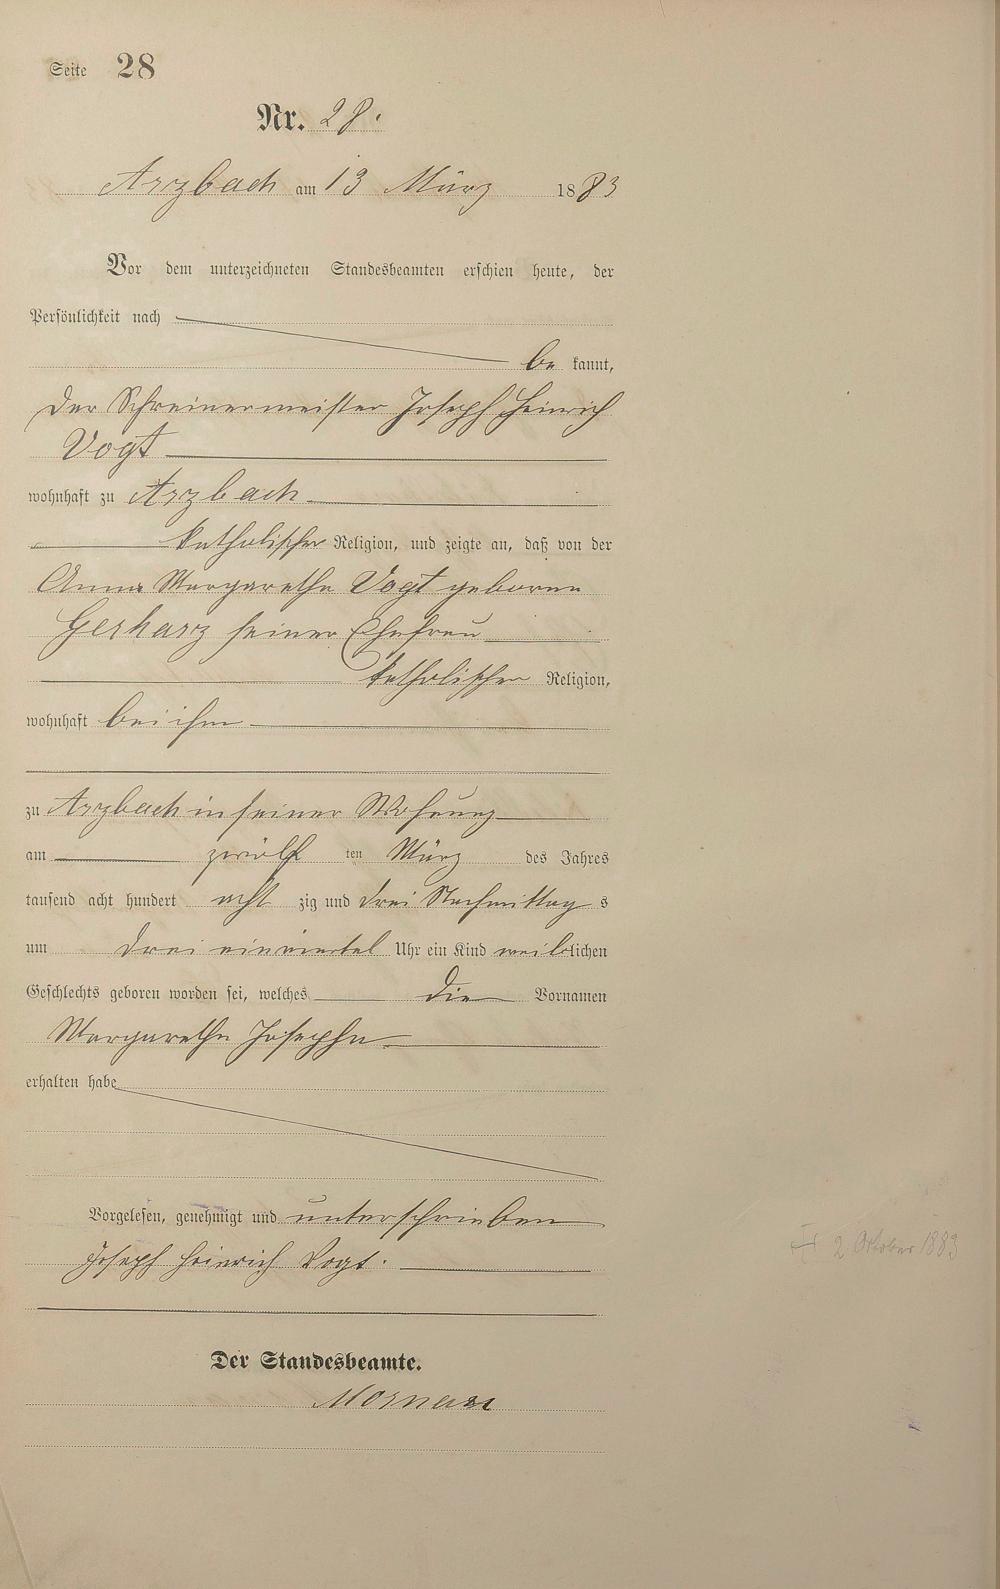 Seite 28
Nr. 28.
Arzbach am 13 März 1883
Vor dem unterzeichneten Standesbeamten erschien heute, der
Persönlichkeit nach
be kannt,
der Schreinermeister Joseph Heinrich
Vogt
wohnhaft zu Arzbach
katholischer Religion, und zeigte an, daß von der
Anna Margarethe Vogt geborene
Gerharz seiner Ehefrau
katholischer Religion,
wohnhaft bei ihm
zu Arzbach in seiner Wohnung
am zwölf ten März des Jahres
tausend acht hundert acht zig und drei Nachmittag s
um drei einviertel Uhr ein Kind weiblichen
Geschlechts geboren worden sei, welches die Vornamen
Margarethe Josepha
erhalten habe
Vorgelesen, genehmigt und unterschrieben
Joseph Heinrich Vogt.
† 2 Oktober 1883
Der Standesbeamte.